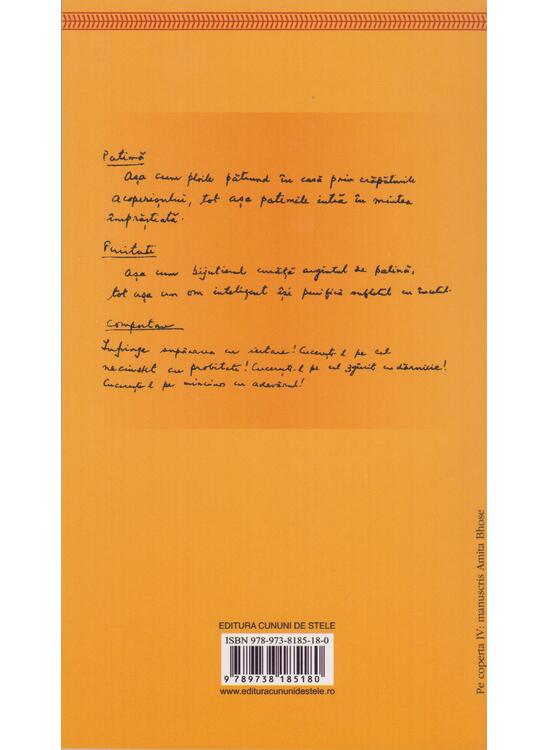 Patimă
Așa cum ploile pătrund în casă prin crăpăturile
acoperișului, tot așa patimile intră în mintea
împrăștiată.
Puritate
Așa cum bijutierul curăță argintul de patină,
tot așa un om inteligent își purifică sufletul cu încetul.
Comportare
Înfrînge supărarea cu iertare! Cucerește-l pe cel
necinstit cu probitate! Cucerește-l pe cel zgîrcit cu dărnicie!
Cucerește-l pe mincinos cu adevărul!
Pe coperta IV: manuscris Amita Bhose
EDITURA CUNUNI DE STELE
ISBN 978-973-8185-18-0
9 789738 185180
www.edituracununidestele.ro